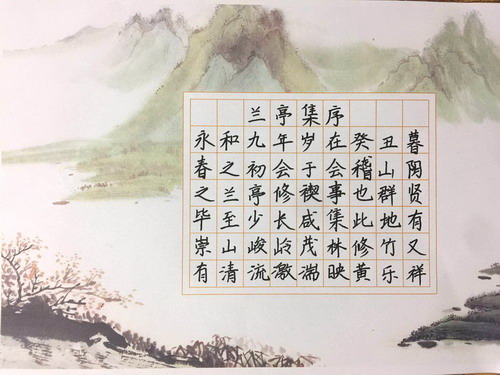 兰亭集序
永和九年岁在癸丑暮
春之初会于会稽山阴
之兰亭修禊事也群贤
毕至少长咸集此地有
崇山峻岭茂林修竹又
有清流激湍映黄乐祥